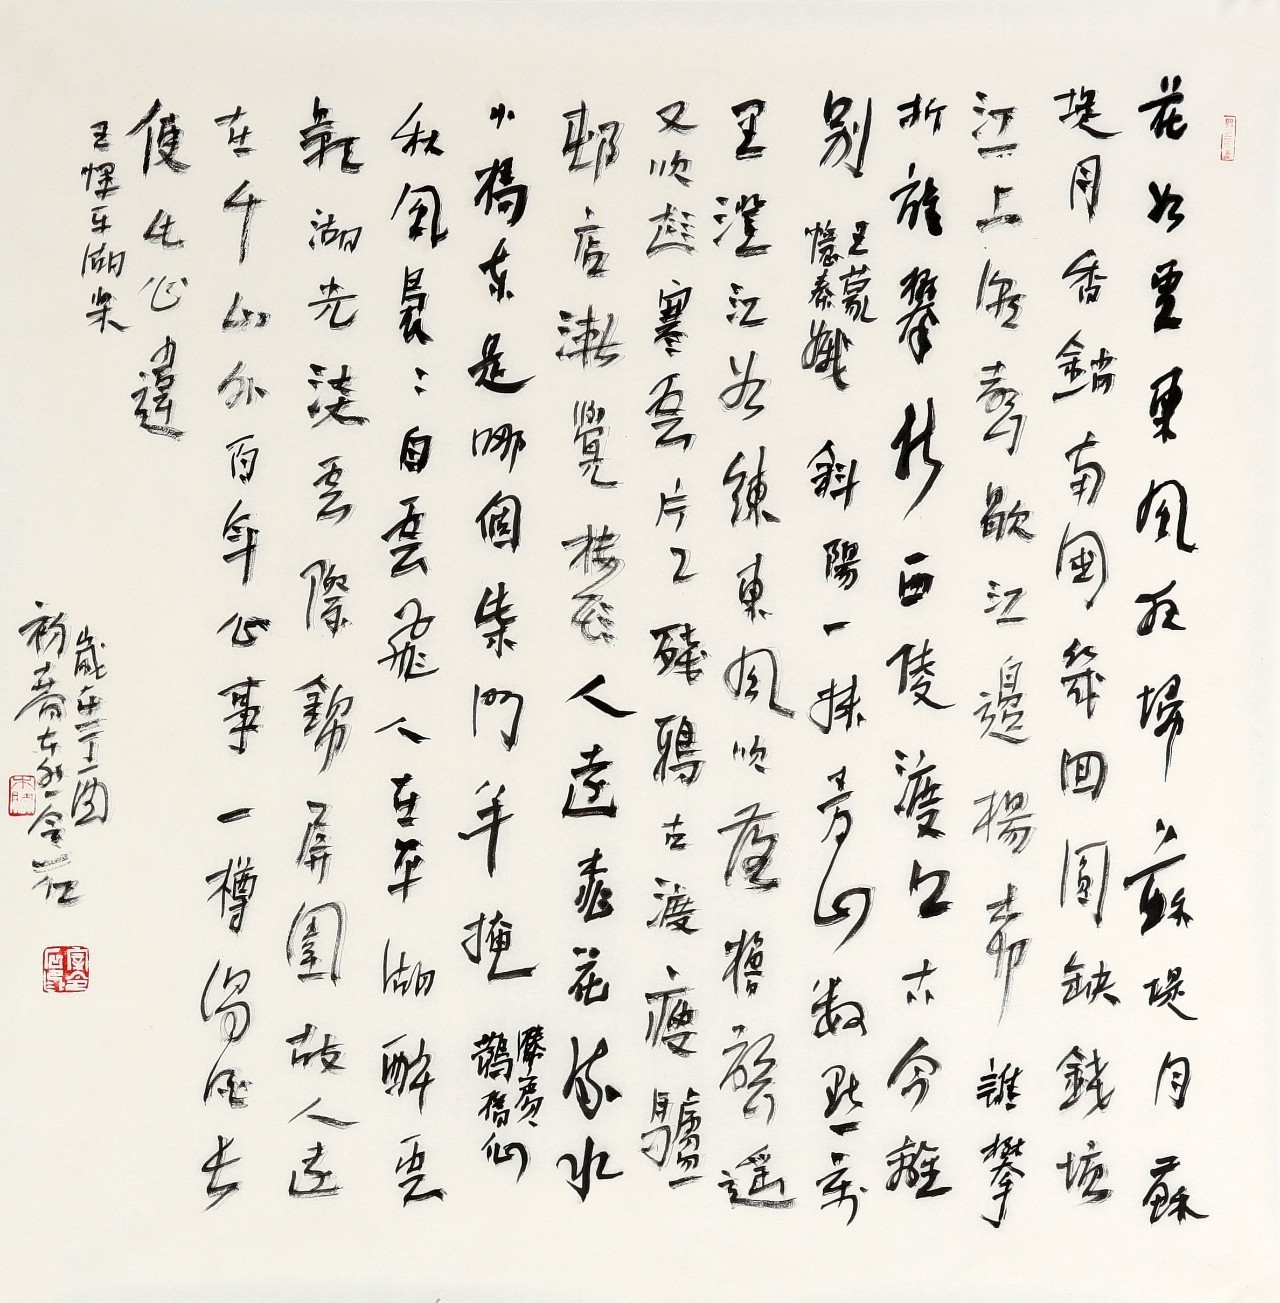 花如雪東風夜掃蘇堤月蘇
堤月香銷南國幾回圓缺錢塘
江上潮聲歇江邊楊柳誰攀
折誰攀折西陵渡口古今離
別 王蒙 憶秦娥 斜陽一抹青山數點萬
里澄江如練東風吹落櫓聲遙
又吹起寒雲片〻殘鴉古渡瘦驢
邨店漸覺樓頭人遠桃花流水
小橋東是哪個柴門半掩 滕賓 鵲橋仙
秋風裊〻白雲飛人在平湖醉雲
影湖光淡雲際錦屏圍故人遠
在千山外百年心事一樽濁酒長
使此心違
王惲平湖樂
歲在丁酉
初春